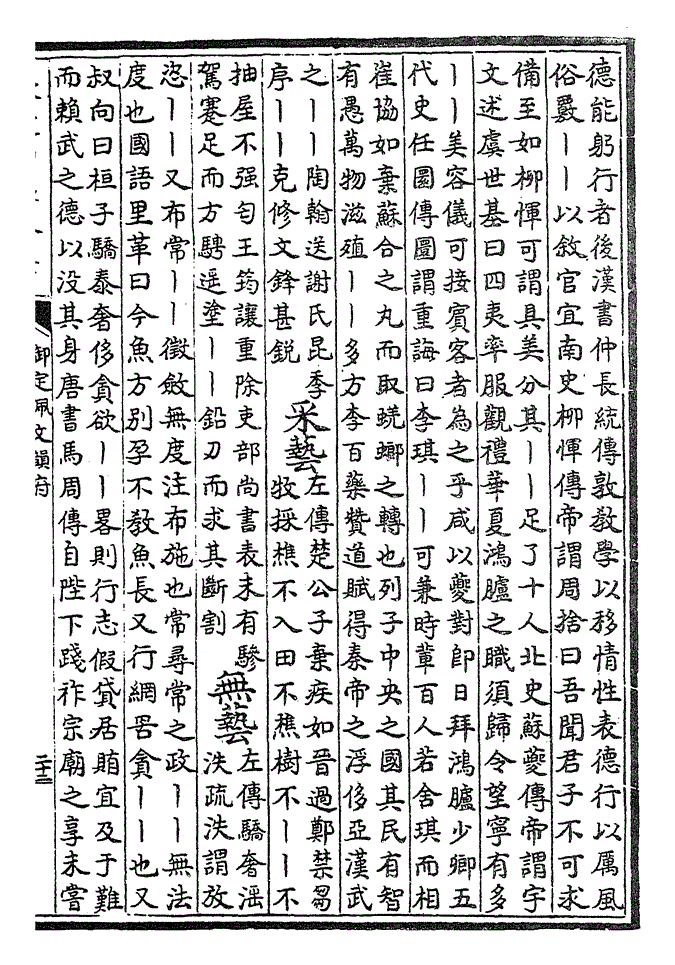 德能躬行者後漢書仲長統傳敦教學以移情性表德行以厲風
俗覈丨丨以敘官宜南史柳惲傳帝謂周捨曰吾聞君子不可求
備至如柳惲可謂具美分其丨丨足了十人北史蘇夔傳帝謂宇
文述虞世基曰四夷率服觀禮華夏鴻臚之職須歸令望寧有多
丨丨美容儀可接賓客者為之乎咸以夔對即日拜鴻臚少卿五
代史任圜傳圜謂重誨曰李琪丨丨可兼時輩百人若舍琪而相
崔協如棄蘇合之丸而取蜣螂之轉也列子中央之國其民有智
有愚萬物滋殖丨丨多方李百藥贊道賦得秦帝之浮侈亞漢武
之丨丨陶翰送謝氏昆季
序丨丨克修文鋒甚銳
采藝
左傳楚公子棄疾如晉過鄭禁芻
牧採樵不入田不樵樹不丨丨不
抽屋不强匄王筠讓重除吏部尚書表未有驂
駕蹇足而方騁遥塗丨丨鉛刀而求其斷割
無藝
左傳驕奢淫
泆疏泆謂放
恣丨丨又布常丨丨徵斂無度注布施也常尋常之政丨丨無法
度也國語里革曰今魚方别孕不教魚長又行網罟貪丨丨也又
叔向曰桓子驕泰奢侈貪欲丨丨畧則行志假貸居賄宜及于難
而賴武之德以没其身唐書馬周傳自陛下踐祚宗廟之享未嘗
御定佩文韻府